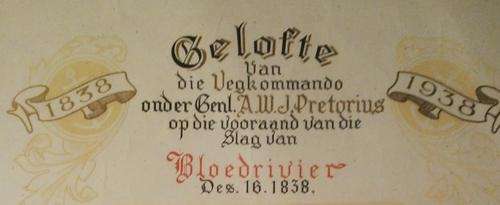 Gelofte
Van
die Vegkommando
1838
onder Genl. A.W.J. Pretorius
1938
op die vooraand van die
Slag van
Bloedrivier
Des. 16. 1838.